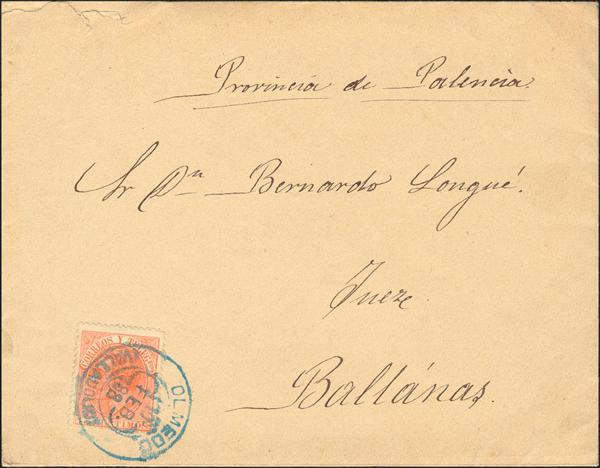 Provincia de Palencia.
Sr Dn Bernardo Longué.
Juez.
Baltánas.
CORREOS Y
OLMEDO
(VALLADOLID)
FEB
88